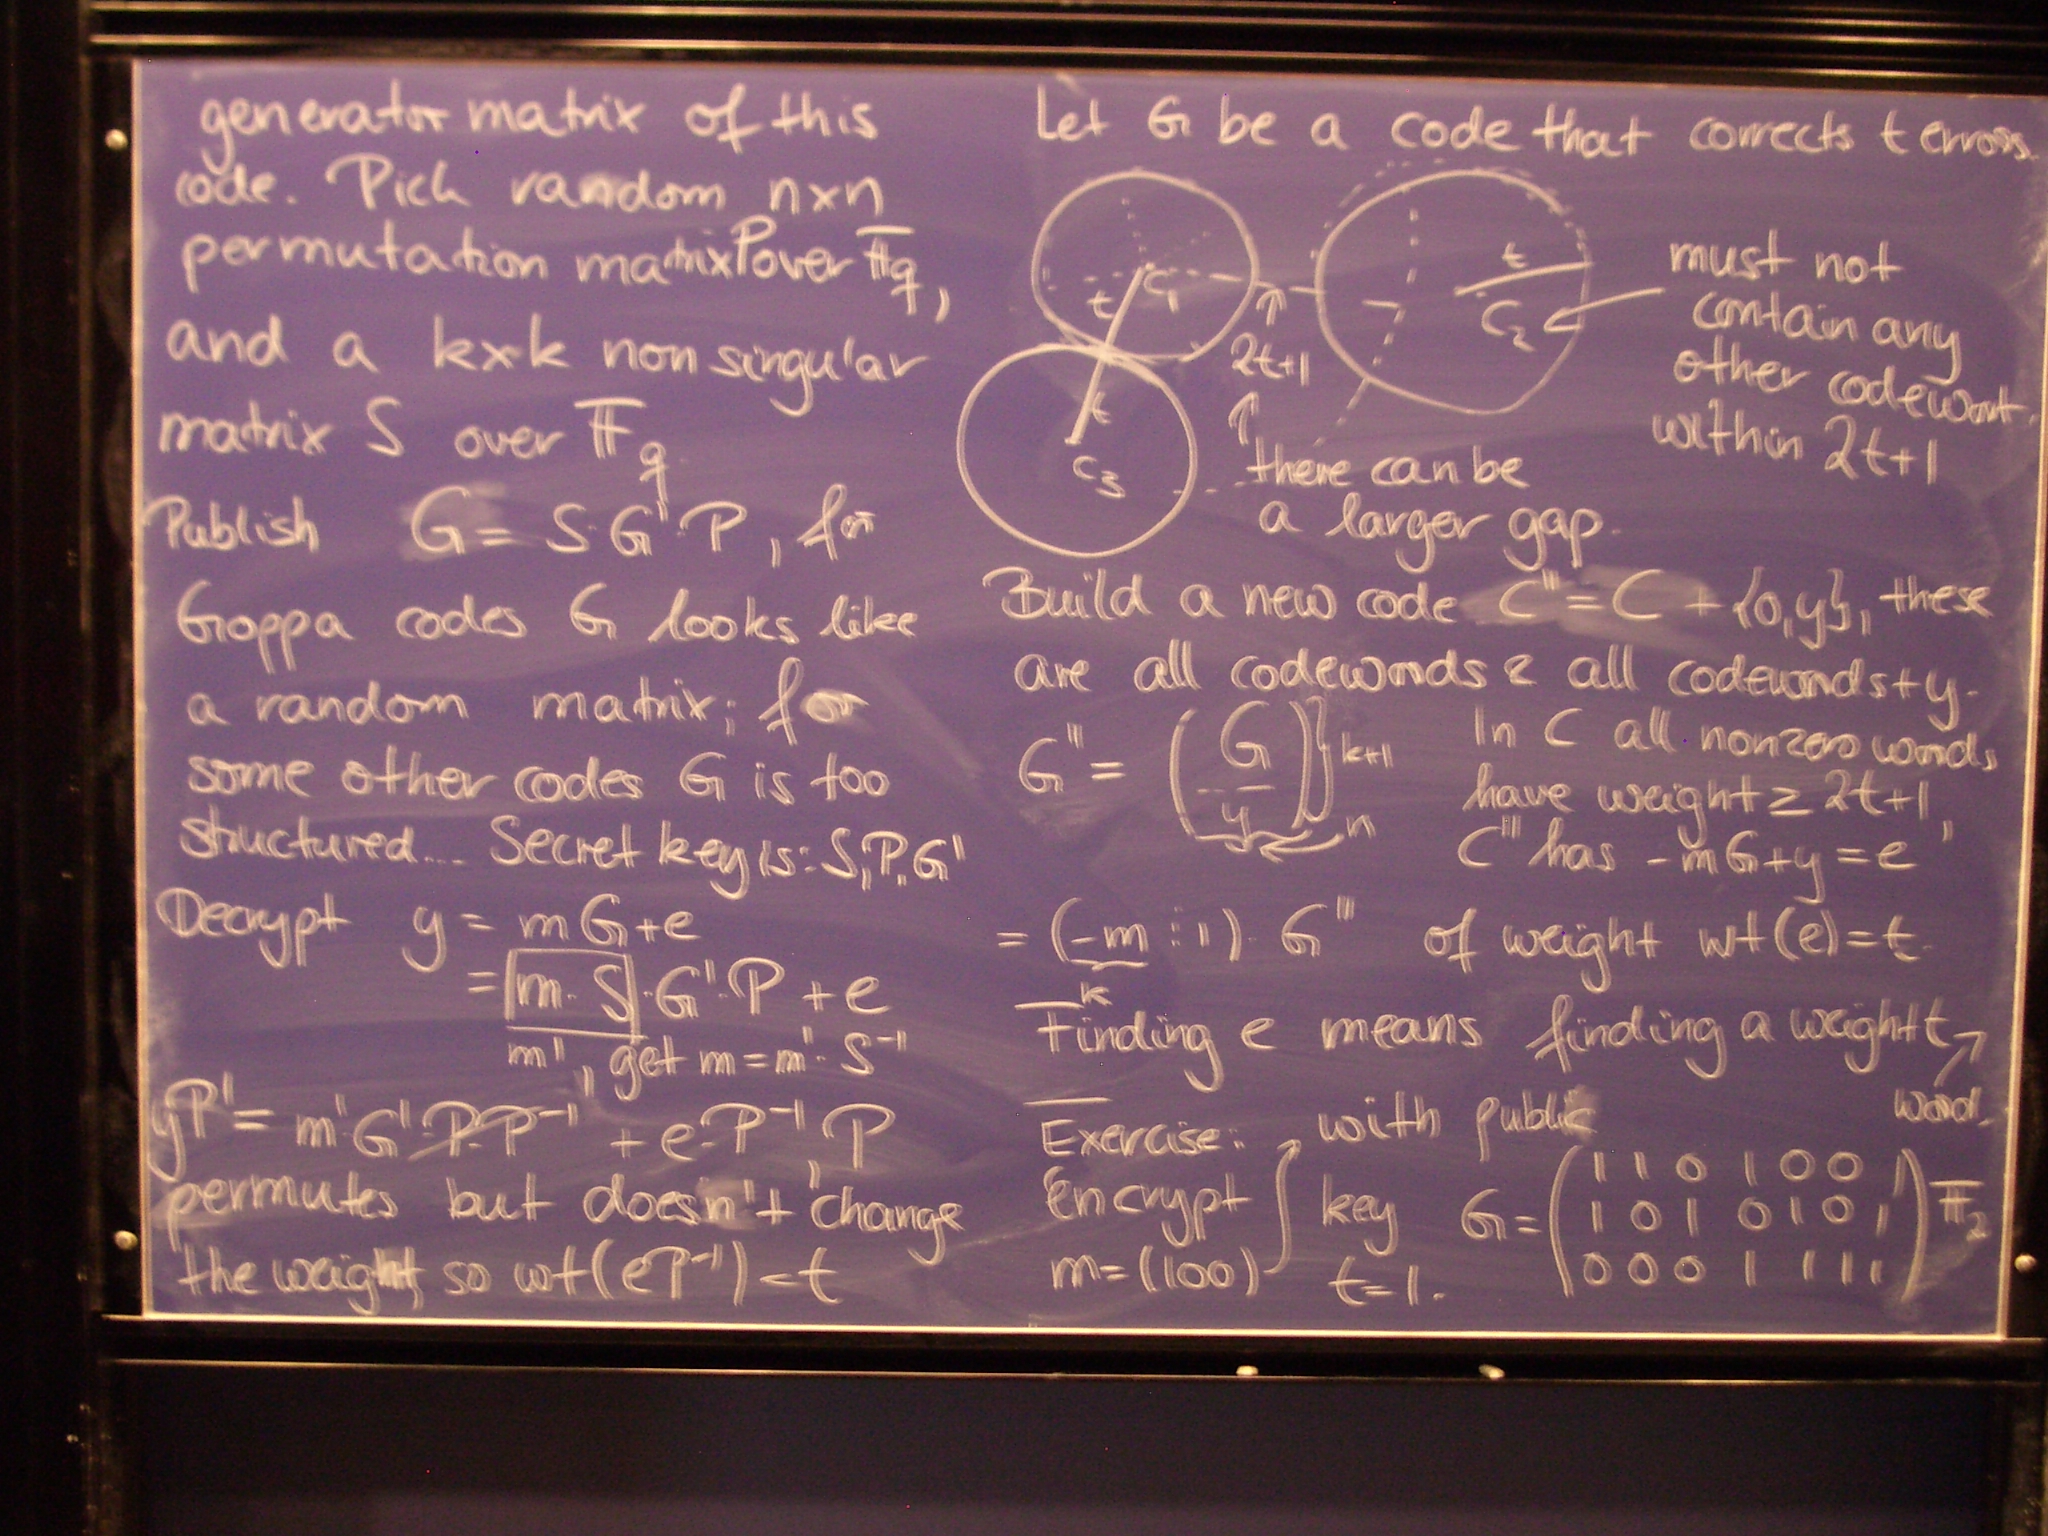 generator matrix of this
code. Pick random n×n
permutation matrix P over F_q,
and a k×k nonsingular
matrix S over F_q.
Publish G = S·G'·P, for
Goppa codes G looks like
a random matrix; for
some other codes G is too
structured... Secret key is: S, P, G'
Decrypt y = mG+e
= m·S·G'·P + e
m', get m = m'·S⁻¹
yP' = m'·G'·P·P⁻¹ + e·P⁻¹, P
permutes but doesn't change
the weight, so wt(eP⁻¹) = t
Let G be a code that corrects t errors.
t c₁
t c₂
2t+1
t
c₃
must not
contain any
other codeword
within 2t+1
there can be
a larger gap.
Build a new code C'' = C + {0,y}, these
are all codewords & all codewords+y.
G'' = (G / y) } k+1
n
In C all nonzero words
have weight ≥ 2t+1,
C''' has -mG+y = e
= (-m : 1)·G''' of weight wt(e)=t.
k
Finding e means finding a weight t
word.
Exercise: with public
Encrypt key G = (1 1 0 1 0 0 1
1 0 1 0 1 0 1
0 0 0 1 1 1 1) F₂
m=(100) t=1.